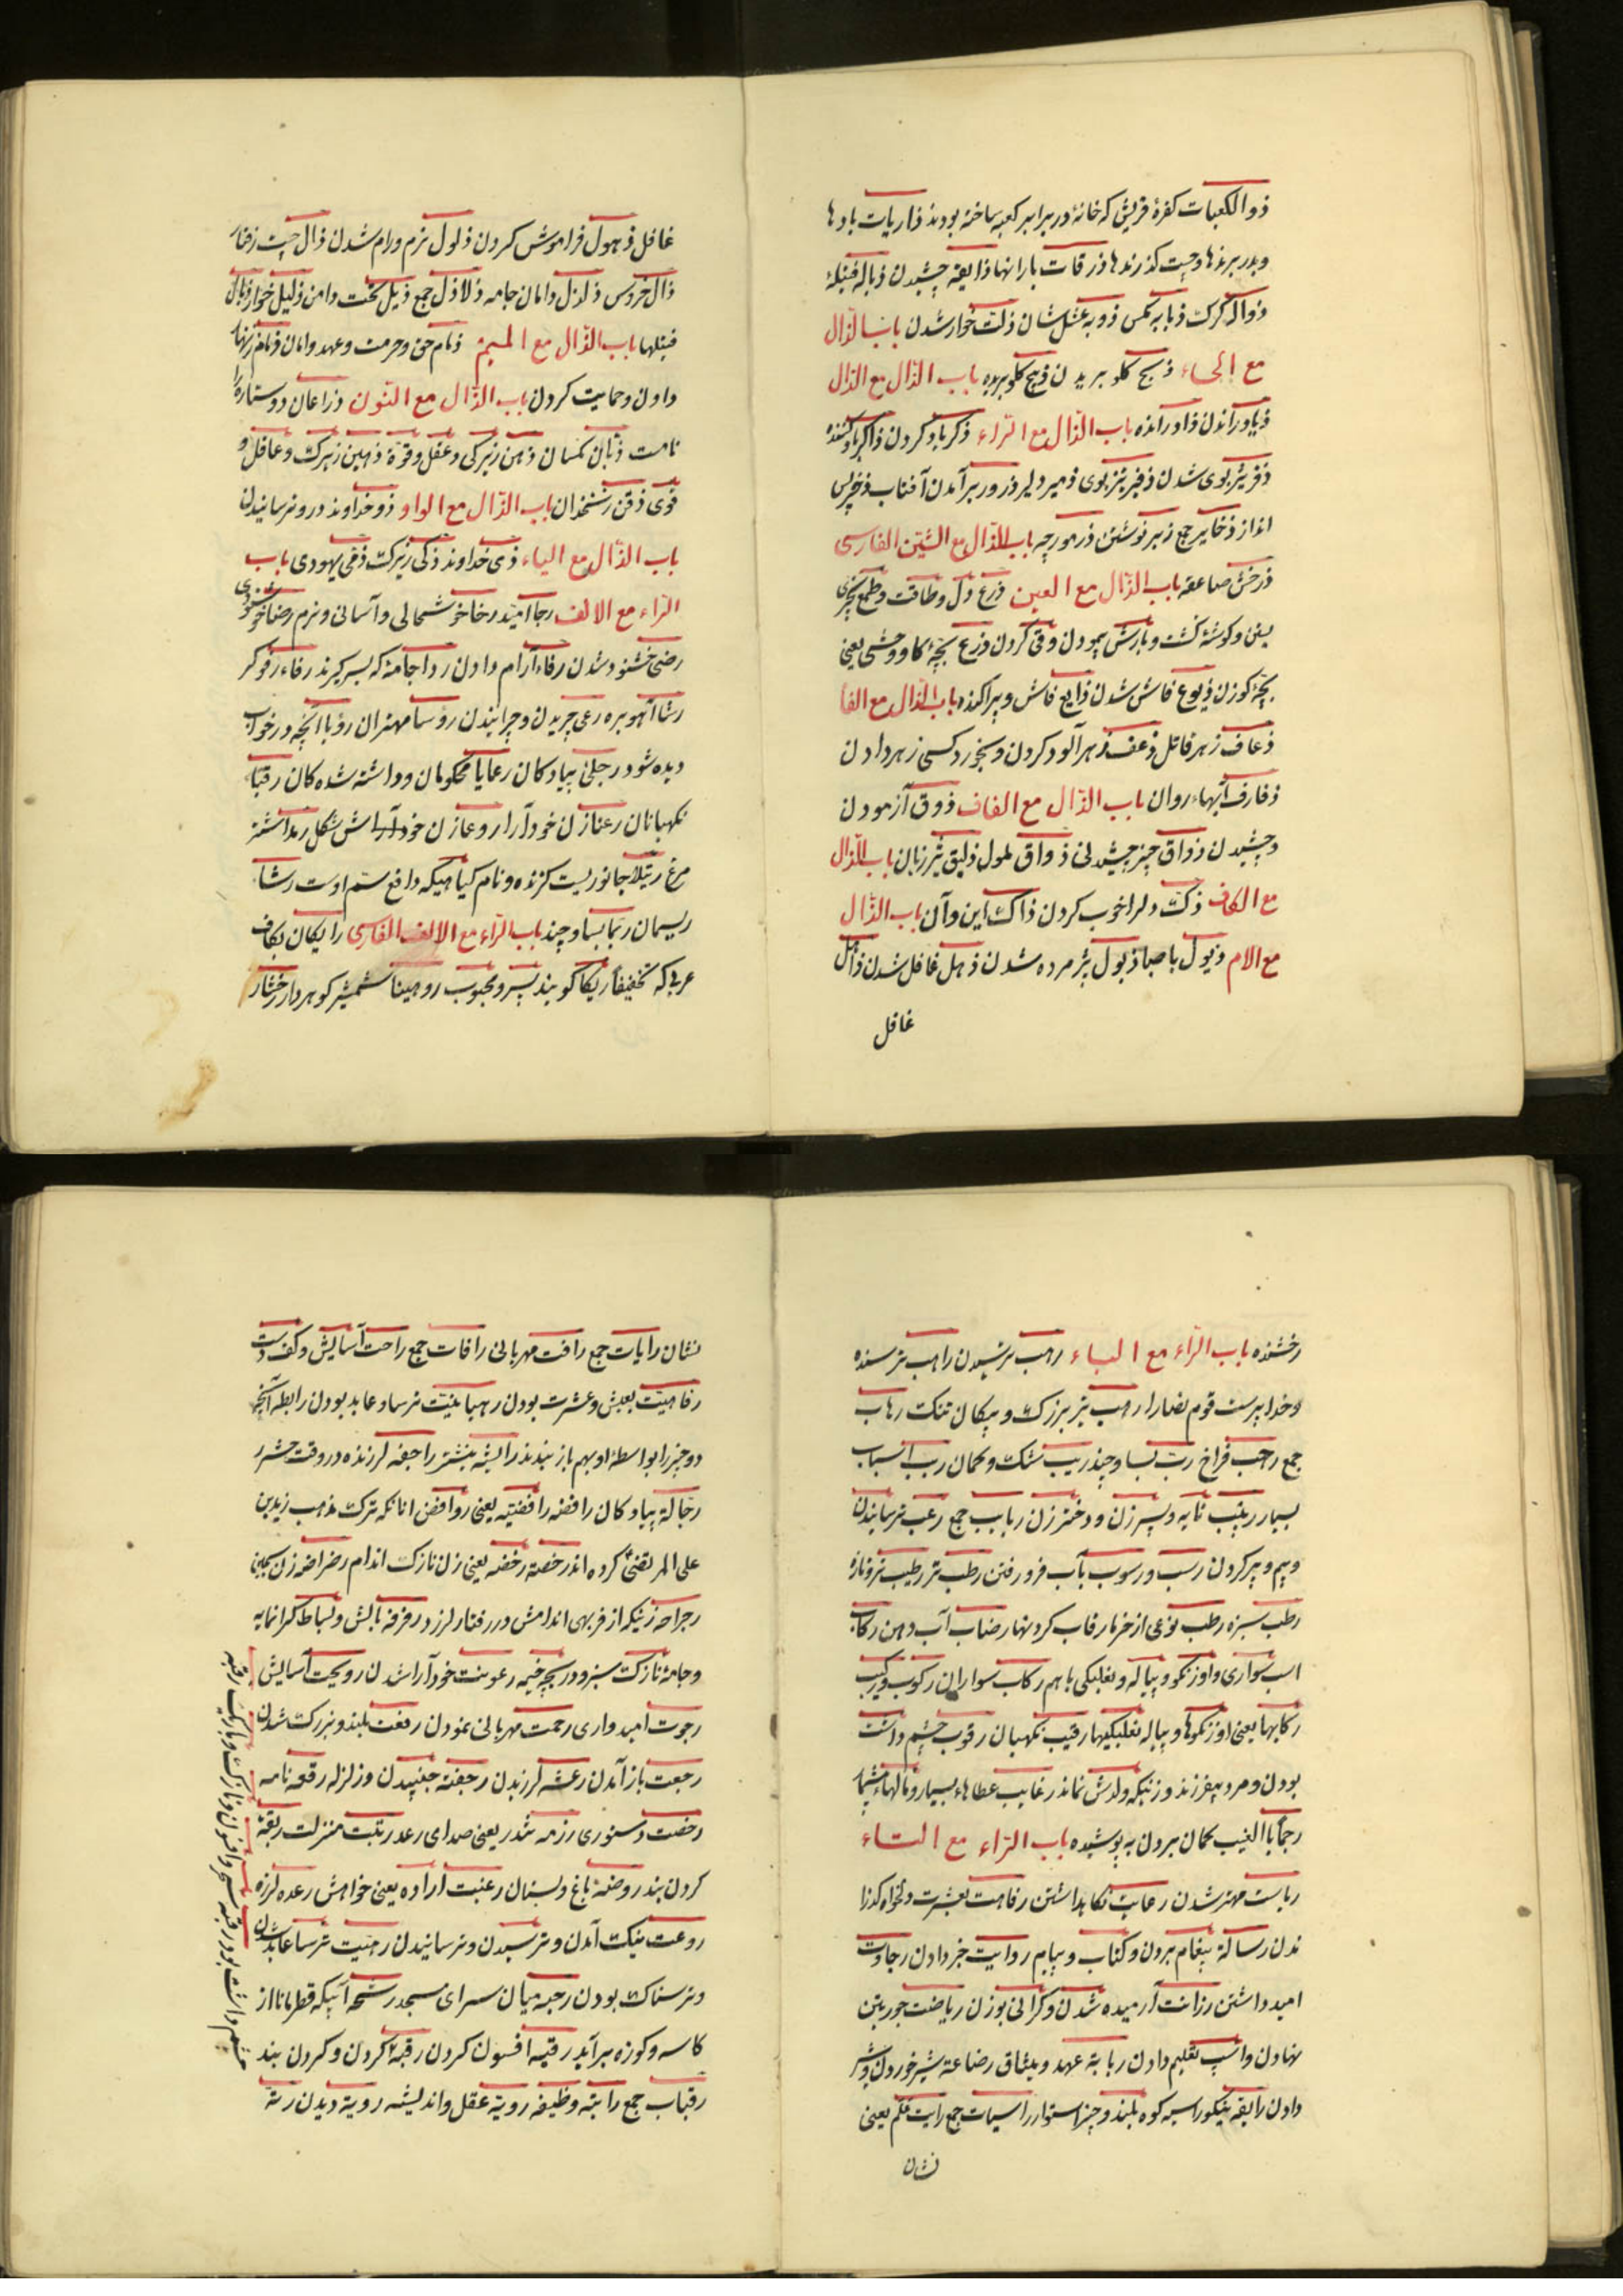 ذوالکعبات کفرهٔ قریش که خانهٔ در برابر کعبه ساخته بودند ذاریات بادها
و بدر برندها و چست کذرندها ذرقات بارانها ذایقه چشیدن ذباله فتیله
و ذواله کرک ذبابه مکس ذوبه عسل شان ذلت خوار شدن باب الذّال
مع الحاء ذبح کلو بریدن ذبیح کلو بریده باب الذّال مع الذّال
ذیاد راندن ذاود رانده باب الذّال مع الرّاء ذکر یاد کردن ذاکر یاد کننده
ذفر تیز بوی شدن ذفیر تیز بوی ذمیر دلیر ذرور برآمدن آفتاب ذخر پس
انداز ذخایر جمع ذبر نوشتن ذر مورچه باب الذّال مع الشّین الفارسی
ذرخش صاعقه باب الذّال مع العین ذرع دل و طاقت و طمع
و کوشهٔ کشت و بارش پیمودن وقی کردن ذرع بچّهٔ کاو وحشی یعنی
بچّهٔ کوزن ذیوع فاش شدن ذایع فاش و پراکنده باب الذّال مع الفا
ذعاف زهر قاتل ذعف زهر آلود کردن و بخورد کسی زهر دادن
ذفارف آبهاء روان باب الذّال مع القاف ذوق آزمودن
و چشیدن ذواق چیز چشیدنی ذواق ملول ذلیق تیز زبان باب الذّال
مع الکاف ذکت دلرا خوب کردن ذاک این و آن باب الذّال
مع الام ذبول باصبا ذبول پژمرده شدن ذهل غافل شدن ذاهل
غافل
غافل ذهول فراموش کردن ذلول نرم و رام شدن ذال چست رفتار
ذال خروس ذلذل دامان جامه ذلاذل جمع ذیل تحت دامن ذلیل خوار ذبال
فتیلها باب الذّال مع المیم ذمام حق و حرمت و عهد و امان ذمام زنهار
دادن و حمایت کردن باب الذّال مع النّون ذراعان دو ستاره را
نامست ذبّان مکسان ذهن زیرکی و عقل و قوة ذهین زیرک و عاقل و
قوی ذقن زنخدان باب الذّال مع الواو ذو خداوند ذرو ترسانیدن
باب الذّال مع الیاء ذی خداوند ذکی زیرک ذمّی یهودی باب
الرّاء مع الالف رجا امّید رخا خوشحالی و آسانی و نرم رضا خوشنودی
رضی خشنود شدن رفاء آرام دادن ردا جامهٔ که بسر کیرند رفاء رفوکر
رشا آهو بره رعی چریدن و چرانیدن روسا مهتران رؤیا آنچه در خواب
دیده شود رجلی پیادکان رعایا محکومان و داشته شده کان رقبا
نکهبانان رعنا زن خودآرا رعنا زن خودآراش شکل رمدا شتر
مرغ رتیلا جانوریست کزنده و نام کیاهیکه دافع سم اوست رشا
ریسمان ربما بسا و چند باب الرّاء مع الالف الفارسی رایکان بکاف
عربی که تخفیفاً ریکا کویند پسر و محبوب روهینا شمشیر کوهردار رخشار
رخشنده باب الرّاء مع الباء رهب ترسیدن راهب ترسنده
و خداپرست قوم نصارا رهب تیر بزرک و پیکان تنک رهاب
جمع رحب فراخ رب بسا و چند ریب شک و کمان رب اسباب
بسیار ربیب نابه و پسر زن و دختر زن ربایب جمع رعب ترسانیدن
و بیم و پر کردن رسب و رسوب بآب فرو رفتن رطب تر رطیب تر و تازه
رطب سبزه رطب نوعی از خرما رقاب کردنها رضاب آب دهن رکاب
اسب سواری و اوزنکو و پیاله و نعلبکی باهم رکب سواران رکوب و رکب
رکابها یعنی اوزنکوها و پیاله نعلبکیها رقیب نکهبان رقوب چشم داشت
بودن و مرد بیفرزند و زنیکه ولدش نماند رغایب عطاهاء بسیار و مالهاء
رجماً بالغیب کمان بردن به پوشیده باب الرّاء مع التاء
ریاست مهتر شدن رعایت نکاهداشتن رفاهت بعشرت و دلخواه کذرا
ندن رسالة پیغام بردن و کتاب و پیام روایت خبر دادن رجاوت
امید داشتن رزانت آرمیده شدن و کرانی بوزن ریاضت جور بتن
نهادن و اسب تعلیم دادن ربابه عهد و میثاق رضاعة شیر خوردن و شیر
دادن رایقه نیکو راسیه کوه بلند و چیز استوار راسیات جمع رایت علم یعنی
نشان
نشان رایات جمع رافت مهربانی رافات جمع راحت آسایش و کف دست
رفاهیّت بعیش و عشرت بودن رهبانیّت ترسا و عابد بودن رابطه آنچه
دو چیز را بواسطهٔ او بهم باز بندند راجفه لرزنده در وقت حشر
رجّالة پیادکان رافضه رافضیّه یعنی روافض آنانکه ترک مذهب زید بن
علی المرتضی کرده اند رخصه رخصه یعنی زن نازک اندام رضراضه زن
رجراجه زنیکه از فربهی اندامش در رفتار لرزد رفرفه بالش و بساط کرانمایه
و جامهٔ نازک سبز و دریچه خیمه رعونت خودآرا شدن رویحت آسایش
رجوت امیدواری رحمت مهربانی نمودن رفعت بلند و بزرک شدن
رجعت باز آمدن رعشه لرزیدن رجفة جنبیدن و زلزله رقعه نامه
رخصت دستوری رزمه تندر یعنی صدای رعد رتبت منزلت ربقة
کردن بند روضة باغ و بستان رغبت اراده یعنی خواهش رعده لرزه
روعت نیک آمدن و ترسیدن و ترسانیدن رهبت ترسا عابد شدن
و ترسناک بودن رحبه میان سرای مسجد رشحه آبیکه قطرمانا از
کاسه و کوزه برآید رقیه افسون کردن رقبه کردن و کردن بند
رقبات جمع راتبه وظیفه رویّة عقل و اندیشه رویة دیدن رثة
چشم داشت بودن رقیه سحر و افسون و نازک و باریک رقبه